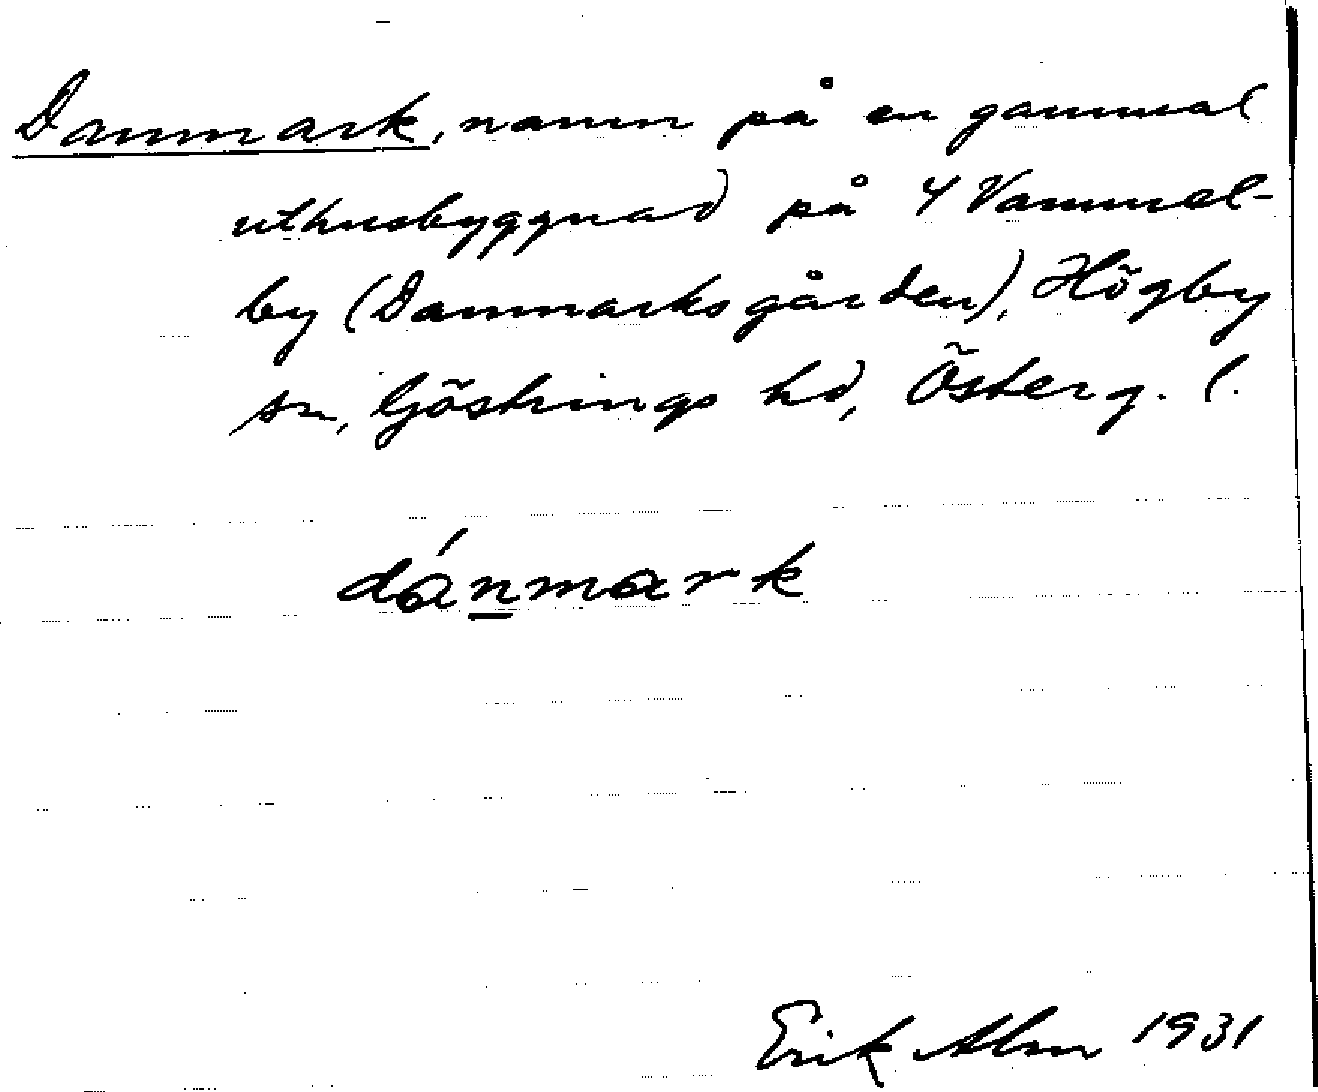 Danmark, namn på en gammal
uthusbyggnad på 4 Vammel-
by (Danmarksgården), Högby
sn, Göstrings hd, Österg. l.
dánmark
Erik Alm 1931